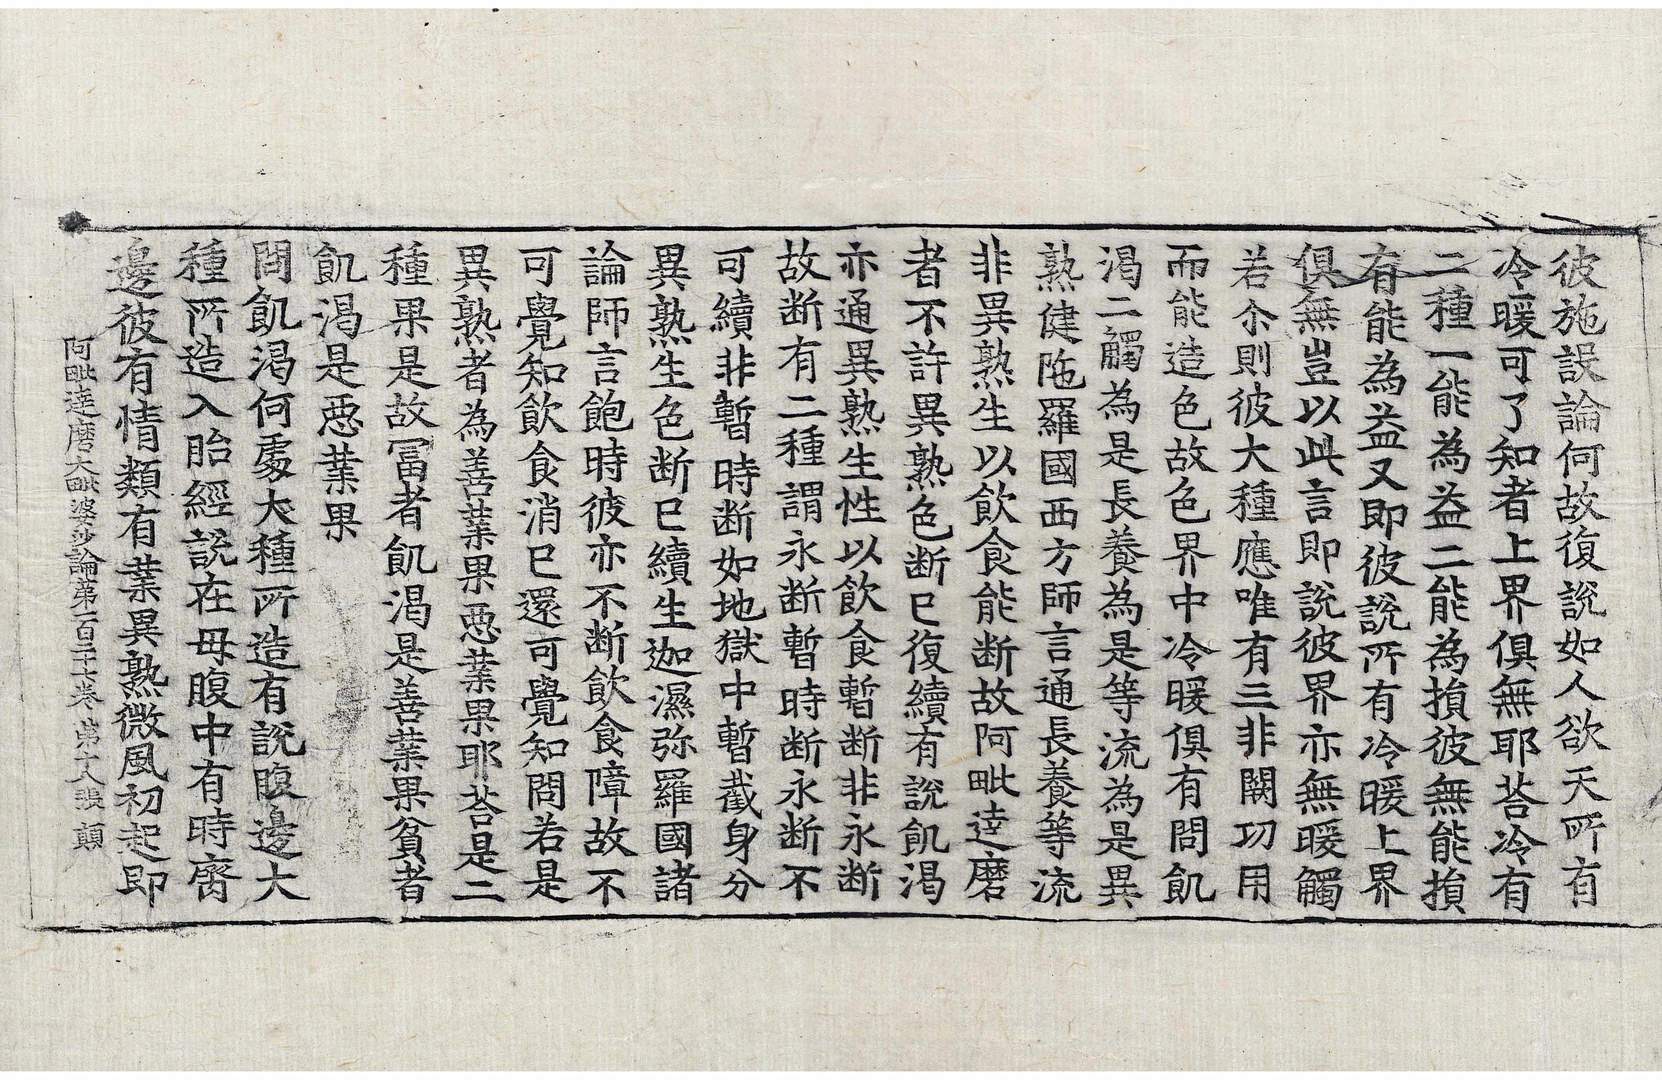 彼施設論何故復說如人欲天所有
冷暖可了知者上界俱無耶荅冷有
二種一能為益二能為損彼無能損
有能為益又即彼說所有冷暖上界
俱無豈以此言即說彼界亦無暖觸
若尒則彼大種應唯有三非闕功用
而能造色故色界中冷暖俱有問飢
渴二觸為是長養為是等流為是異
熟健陁羅國西方師言通長養等流
非異熟生以飲食能断故阿毗達磨
者不許異熟色断已復續有說飢渴
亦通異熟生性以飲食暫断非永断
故断有二種謂永断暫時断永断不
可續非暫時断如地獄中暫截身分
異熟生色断已續生迦濕弥羅國諸
論師言飽時彼亦不断飲食障故不
可覺知飲食消已還可覺知問若是
異熟者為善業果惡業果耶荅是二
種果是故冨者飢渴是善業果貧者
飢渴是惡業果
問飢渴何處大種所造有說腹邊大
種所造入胎經說在母腹中有時齊
邊彼有情類有業異熟微風初起即
阿毗達磨大毗婆沙論第一百二十七卷 第十八張 顛